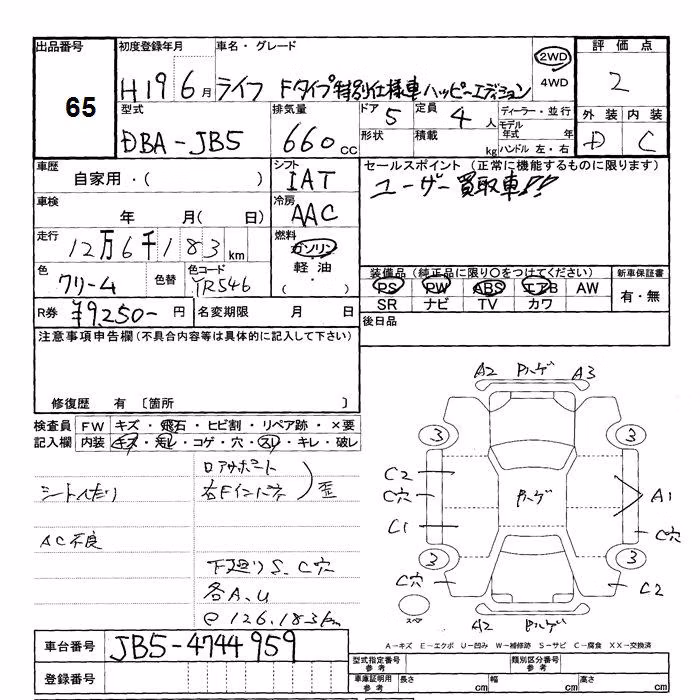 出品番号
65
初度登録年月
H19 6月
車名・グレード
ライフ Fタイプ特別仕様車ハッピーエディション
2WD
4WD
評価点
2
外装 内装
D C
型式
DBA-JB5
排気量
660cc
ドア
5
定員
4人
ディーラー・並行
モデル
年式 年
形状
積載
kg
ハンドル 左・右
車歴
自家用・( )
シフト
IAT
セールスポイント(正常に機能するものに限ります)
ユーザー買取車!!
車検
年 月( 日)
冷房
AAC
走行
12万6千183km
燃料
ガソリン
軽油
・
( )
色
クリーム
色替
色コード
YR546
装備品(純正品に限り○をつけてください)
PS PW ABS エアB AW
SR ナビ TV カワ
新車保証書
有・無
R券
¥9,250-円
名変期限 月 日
後日品
注意事項申告欄(不具合内容等は具体的に記入して下さい)
修復歴 有 〔箇所 〕
検査員
記入欄
FW キズ・飛石・ヒビ割・リペア跡・×要
内装 キズ・汚レ・コゲ・穴・スレ・キレ・破レ
ロアサポート
シートへたり
右Fインパネ
歪
AC不良
下廻りS、C穴
各A、U
@126.183km
A2 Pハゲ A3
3 3
C2
C穴
C1
Pハゲ
A1
C穴
3 3
C穴
C2
スペア
A2 Pハゲ
車台番号
JB5-4744959
登録番号
A-キズ E-エクボ U-凹み W-補修跡 S-サビ C-腐食 XX-交換済
型式指定番号
参考
類別区分番号
参考
車庫証明用
参考
長さ cm
幅 cm
高さ cm